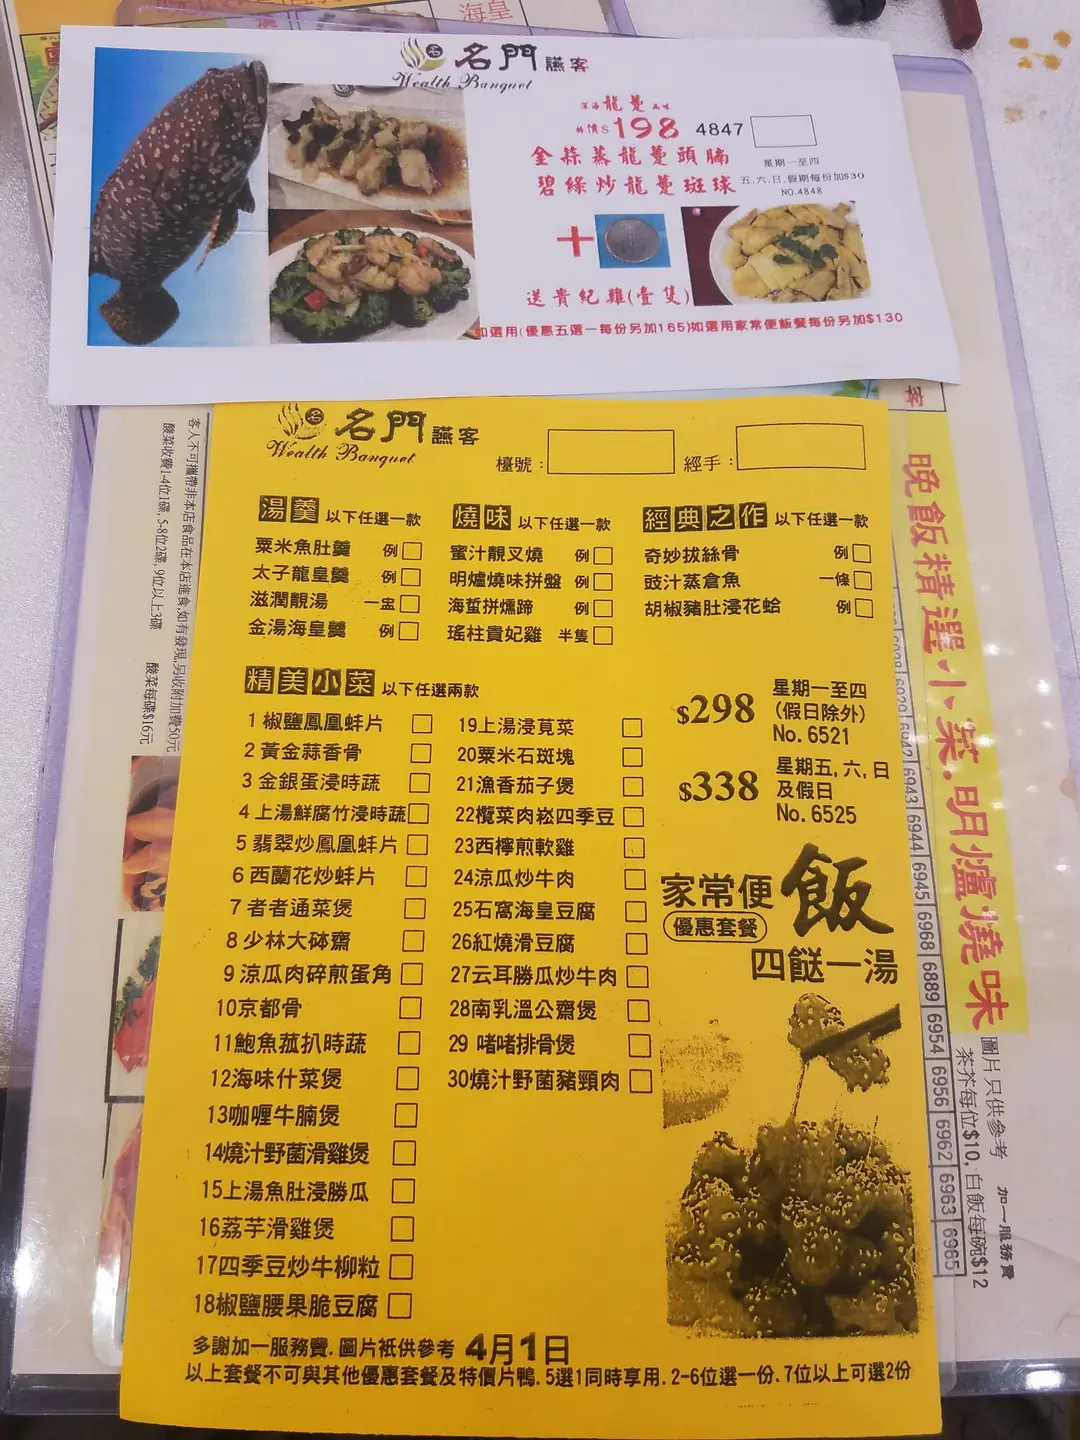 海皇
名 名門讌客
Wealth Banquet
深海龍躉兩味
特價$198 4847
金蒜蒸龍躉頭腩
星期一至四
碧綠炒龍躉斑球
五.六.日.假期每份加$30
NO.4848
+
送貴妃雞(壹隻)
如選用(優惠五選一每份另加165)如選用家常便飯餐每份另加$130
名 名門讌客
Wealth Banquet
檯號：
經手：
湯羹 以下任選一款
粟米魚肚羹 例
太子龍皇羹 例
滋潤靚湯 一盅
金湯海皇羹 例
燒味 以下任選一款
蜜汁靚叉燒 例
明爐燒味拼盤 例
海蜇拼燻蹄 例
瑤柱貴妃雞 半隻
經典之作 以下任選一款
奇妙拔絲骨 例
豉汁蒸倉魚 一條
胡椒豬肚浸花蛤 例
精美小菜 以下任選兩款
1 椒鹽鳳凰蚌片
2 黃金蒜香骨
3 金銀蛋浸時蔬
4 上湯鮮腐竹浸時蔬
5 翡翠炒鳳凰蚌片
6 西蘭花炒蚌片
7 者者通菜煲
8 少林大砵齋
9 涼瓜肉碎煎蛋角
10京都骨
11鮑魚菰扒時蔬
12海味什菜煲
13咖喱牛腩煲
14燒汁野菌滑雞煲
15上湯魚肚浸勝瓜
16荔芋滑雞煲
17四季豆炒牛柳粒
18椒鹽腰果脆豆腐
19上湯浸莧菜
20粟米石斑塊
21漁香茄子煲
22欖菜肉崧四季豆
23西檸煎軟雞
24涼瓜炒牛肉
25石窩海皇豆腐
26紅燒滑豆腐
27云耳勝瓜炒牛肉
28南乳溫公齋煲
29 啫啫排骨煲
30燒汁野菌豬頸肉
$298 星期一至四
(假日除外)
No. 6521
$338 星期五, 六, 日
及假日
No. 6525
家常便飯
優惠套餐
四餸一湯
多謝加一服務費. 圖片衹供參考 4月1日
以上套餐不可與其他優惠套餐及特價片鴨. 5選1同時享用. 2-6位選一份. 7位以上可選2份
客人不可攜帶非本店食品在本店進食,如有發現,另收附加費50元
酸菜收費1-4位1碟, 5-8位2碟, 9位以上3碟
酸菜每碟$16元
客
晚飯精選小菜.明爐燒味
6943 6944 6945 6968 6889 6954 6956 6962 6963 6965
圖片只供參考 加一服務費
茶芥每位$10, 白飯每碗$12